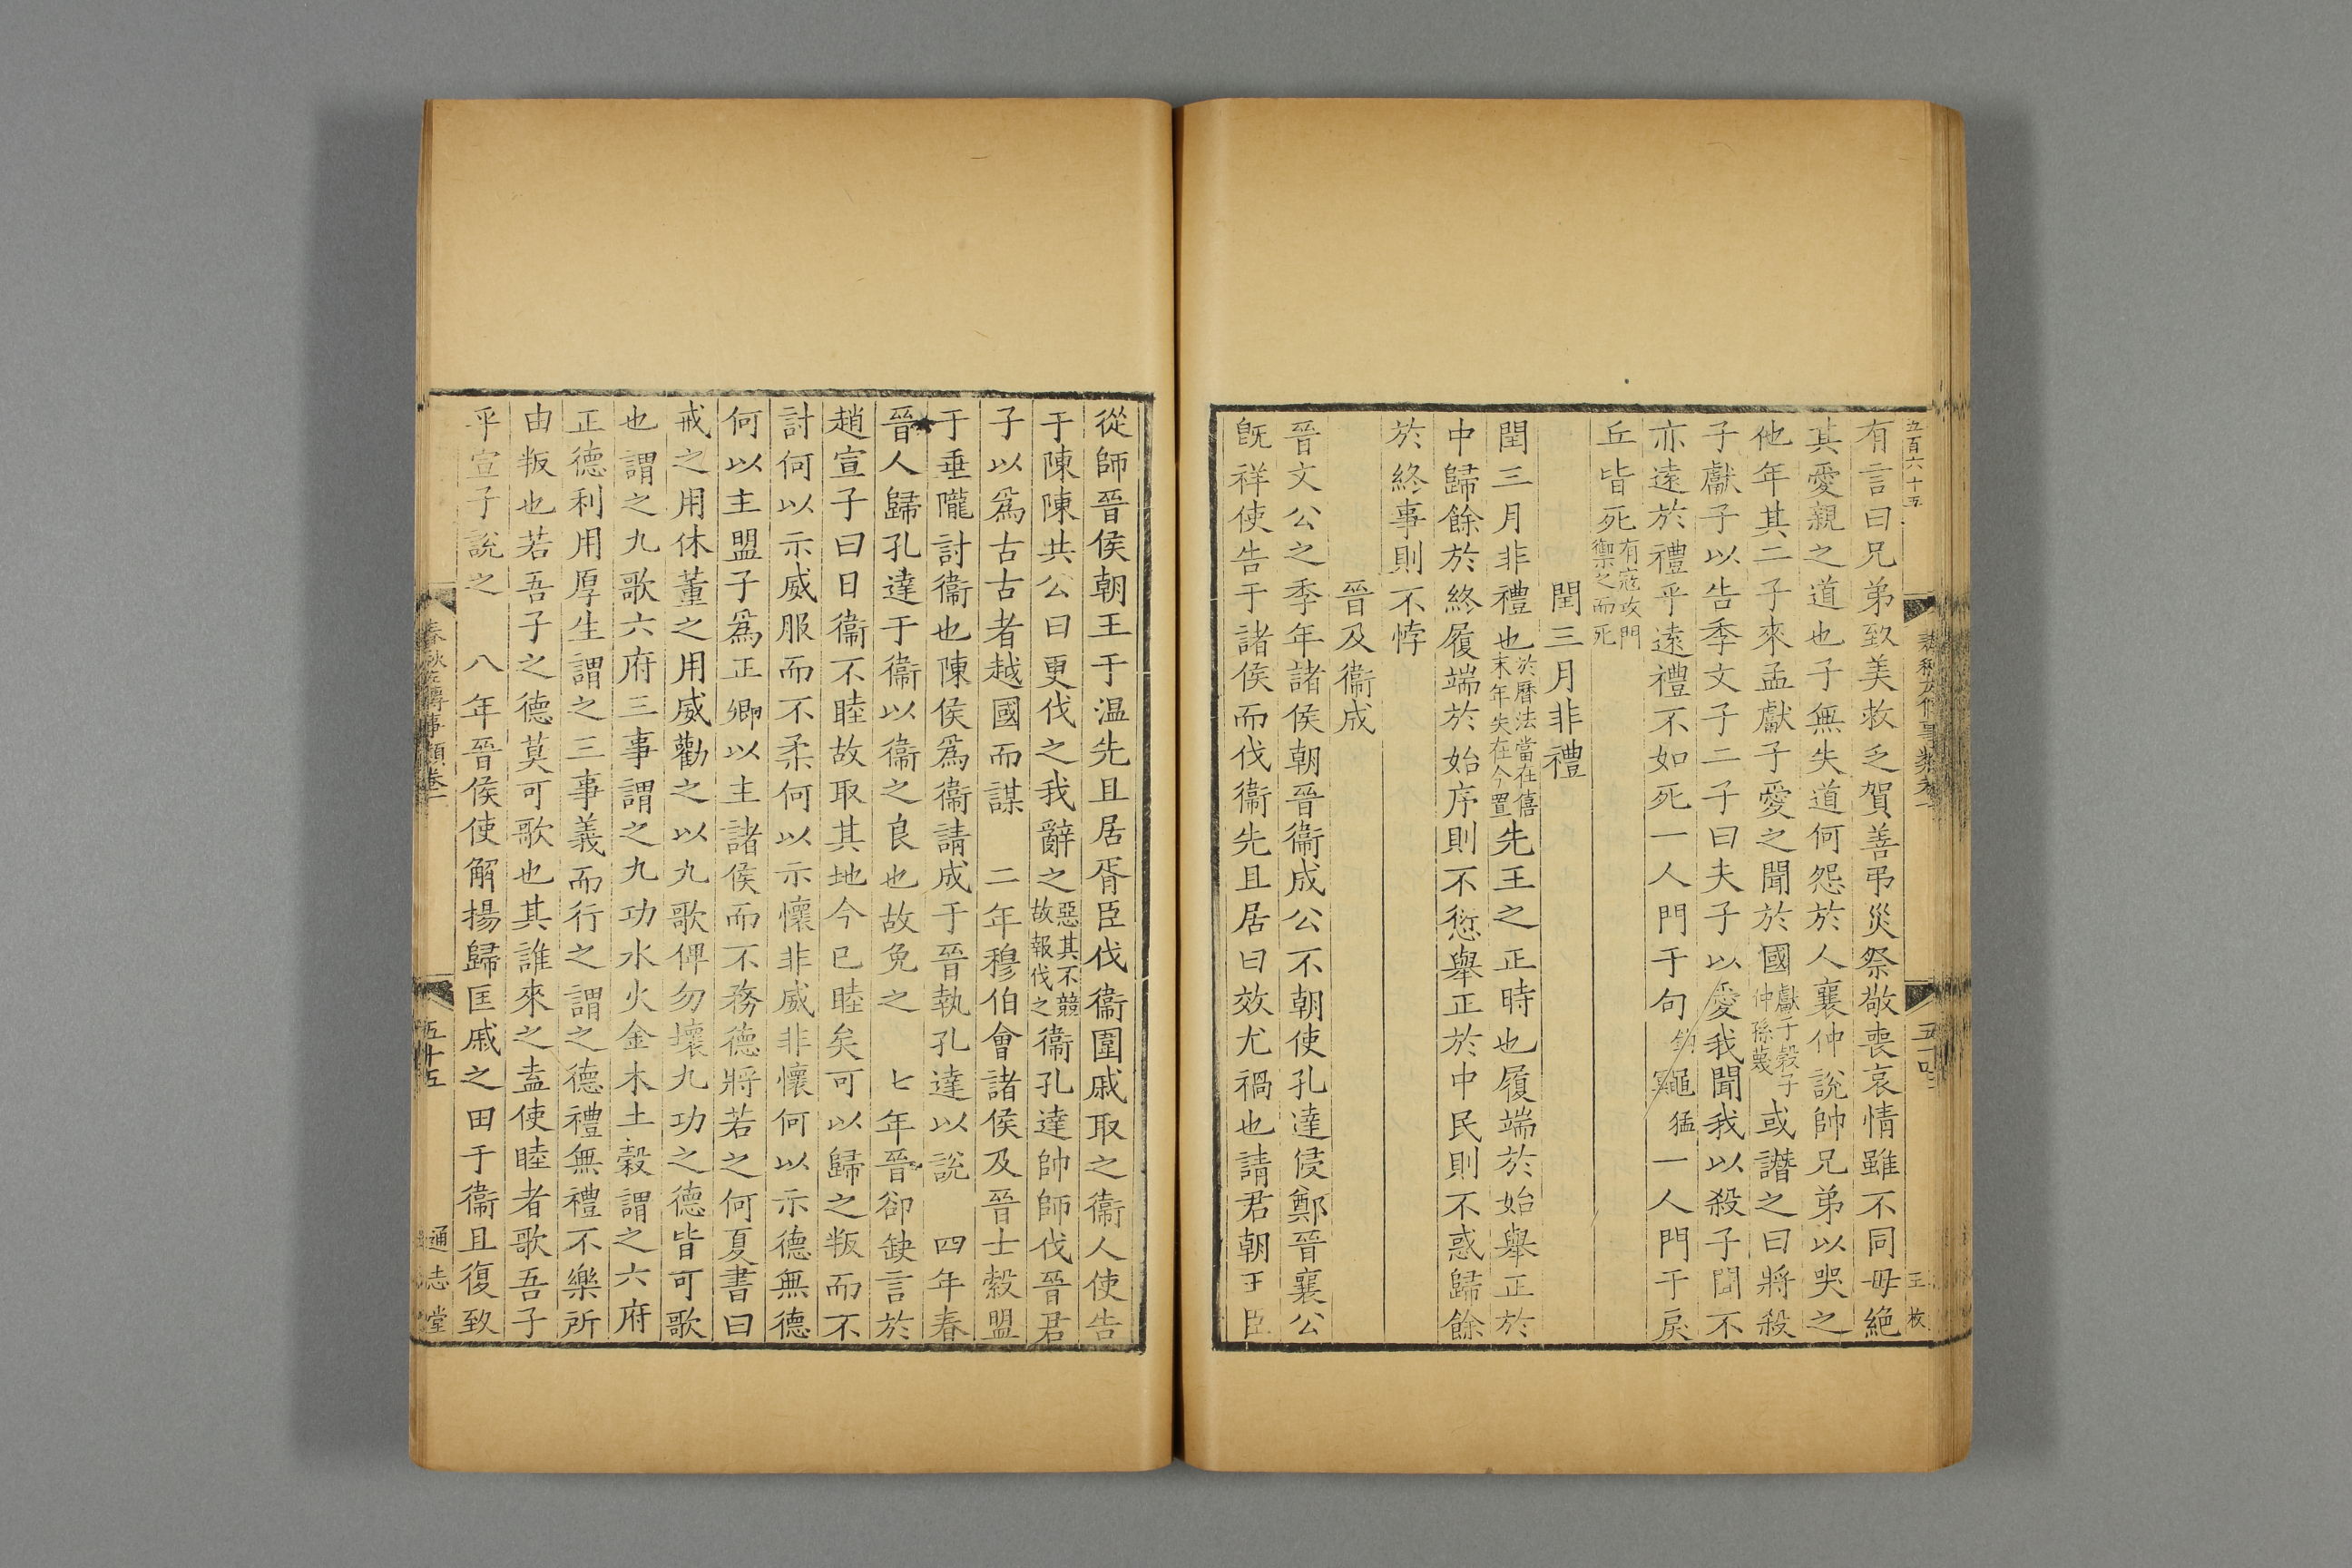 五百六十五
有言曰兄弟致美救乏賀善弔災祭敬喪哀情雖不同毋絶
其愛親之道也子無失道何怨於人襄仲説帥兄弟以哭之
他年其二子來孟獻子愛之聞於國獻子穀子仲孫蔑或譖之曰將殺
子獻子以告季文子二子曰夫子以愛我聞我以殺子聞不
亦遠於禮乎遠禮不如死一人門于句鼆猛一人門于戾
丘皆死有寇攻門禦之而死
閏三月非禮
閏三月非禮也於曆法當在僖末年失在今置先王之正時也履端於始舉正於
中歸餘於終履端於始序則不愆舉正於中民則不惑歸餘
於終事則不悖
晉及衞成
晉文公之季年諸侯朝晉衞成公不朝使孔達侵鄭晉襄公
旣祥使告于諸侯而伐衞先且居曰效尤禍也請君朝王臣
從師晉侯朝王于温先且居胥臣伐衞圍戚取之衞人使告
于陳陳共公曰更伐之我辭之惡其不競故報伐之衞孔達帥師伐晉君
子以爲古古者越國而謀　二年穆伯會諸侯及晉士縠盟
于垂隴討衞也陳侯爲衞請成于晉執孔達以說　四年春
晉人歸孔達于衞以衞之良也故免之　七年晉郤缺言於
趙宣子曰日衞不睦故取其地今已睦矣可以歸之叛而不
討何以示威服而不柔何以示懷非威非懷何以示德無德
何以主盟子爲正卿以主諸侯而不務德將若之何夏書曰
戒之用休董之用威勸之以九歌俾勿壞九功之德皆可歌
也謂之九歌六府三事謂之九功水火金木土穀謂之六府
正德利用厚生謂之三事義而行之謂之德禮無禮不樂所
由叛也若吾子之德莫可歌也其誰來之盍使睦者歌吾子
乎宣子說之　八年晉侯使解揚歸匡戚之田于衞且復致
春秋左傳事類卷一
五十五
通志堂